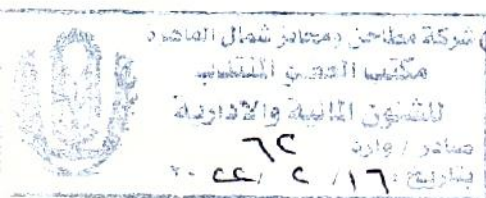 شركة مطاحن ومخابز شمال القاهرة
مكتب العضو المنتدب
للشئون المالية والادارية
صادر / وارد ٦٢
بتاريخ : ١٦ / ٢ / ٢٠٢٢